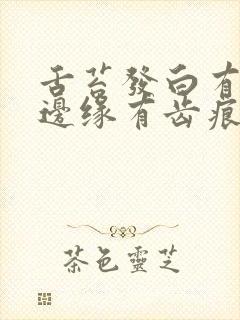 舌苔發白有
邊缘有齿痕
茶色靈芝